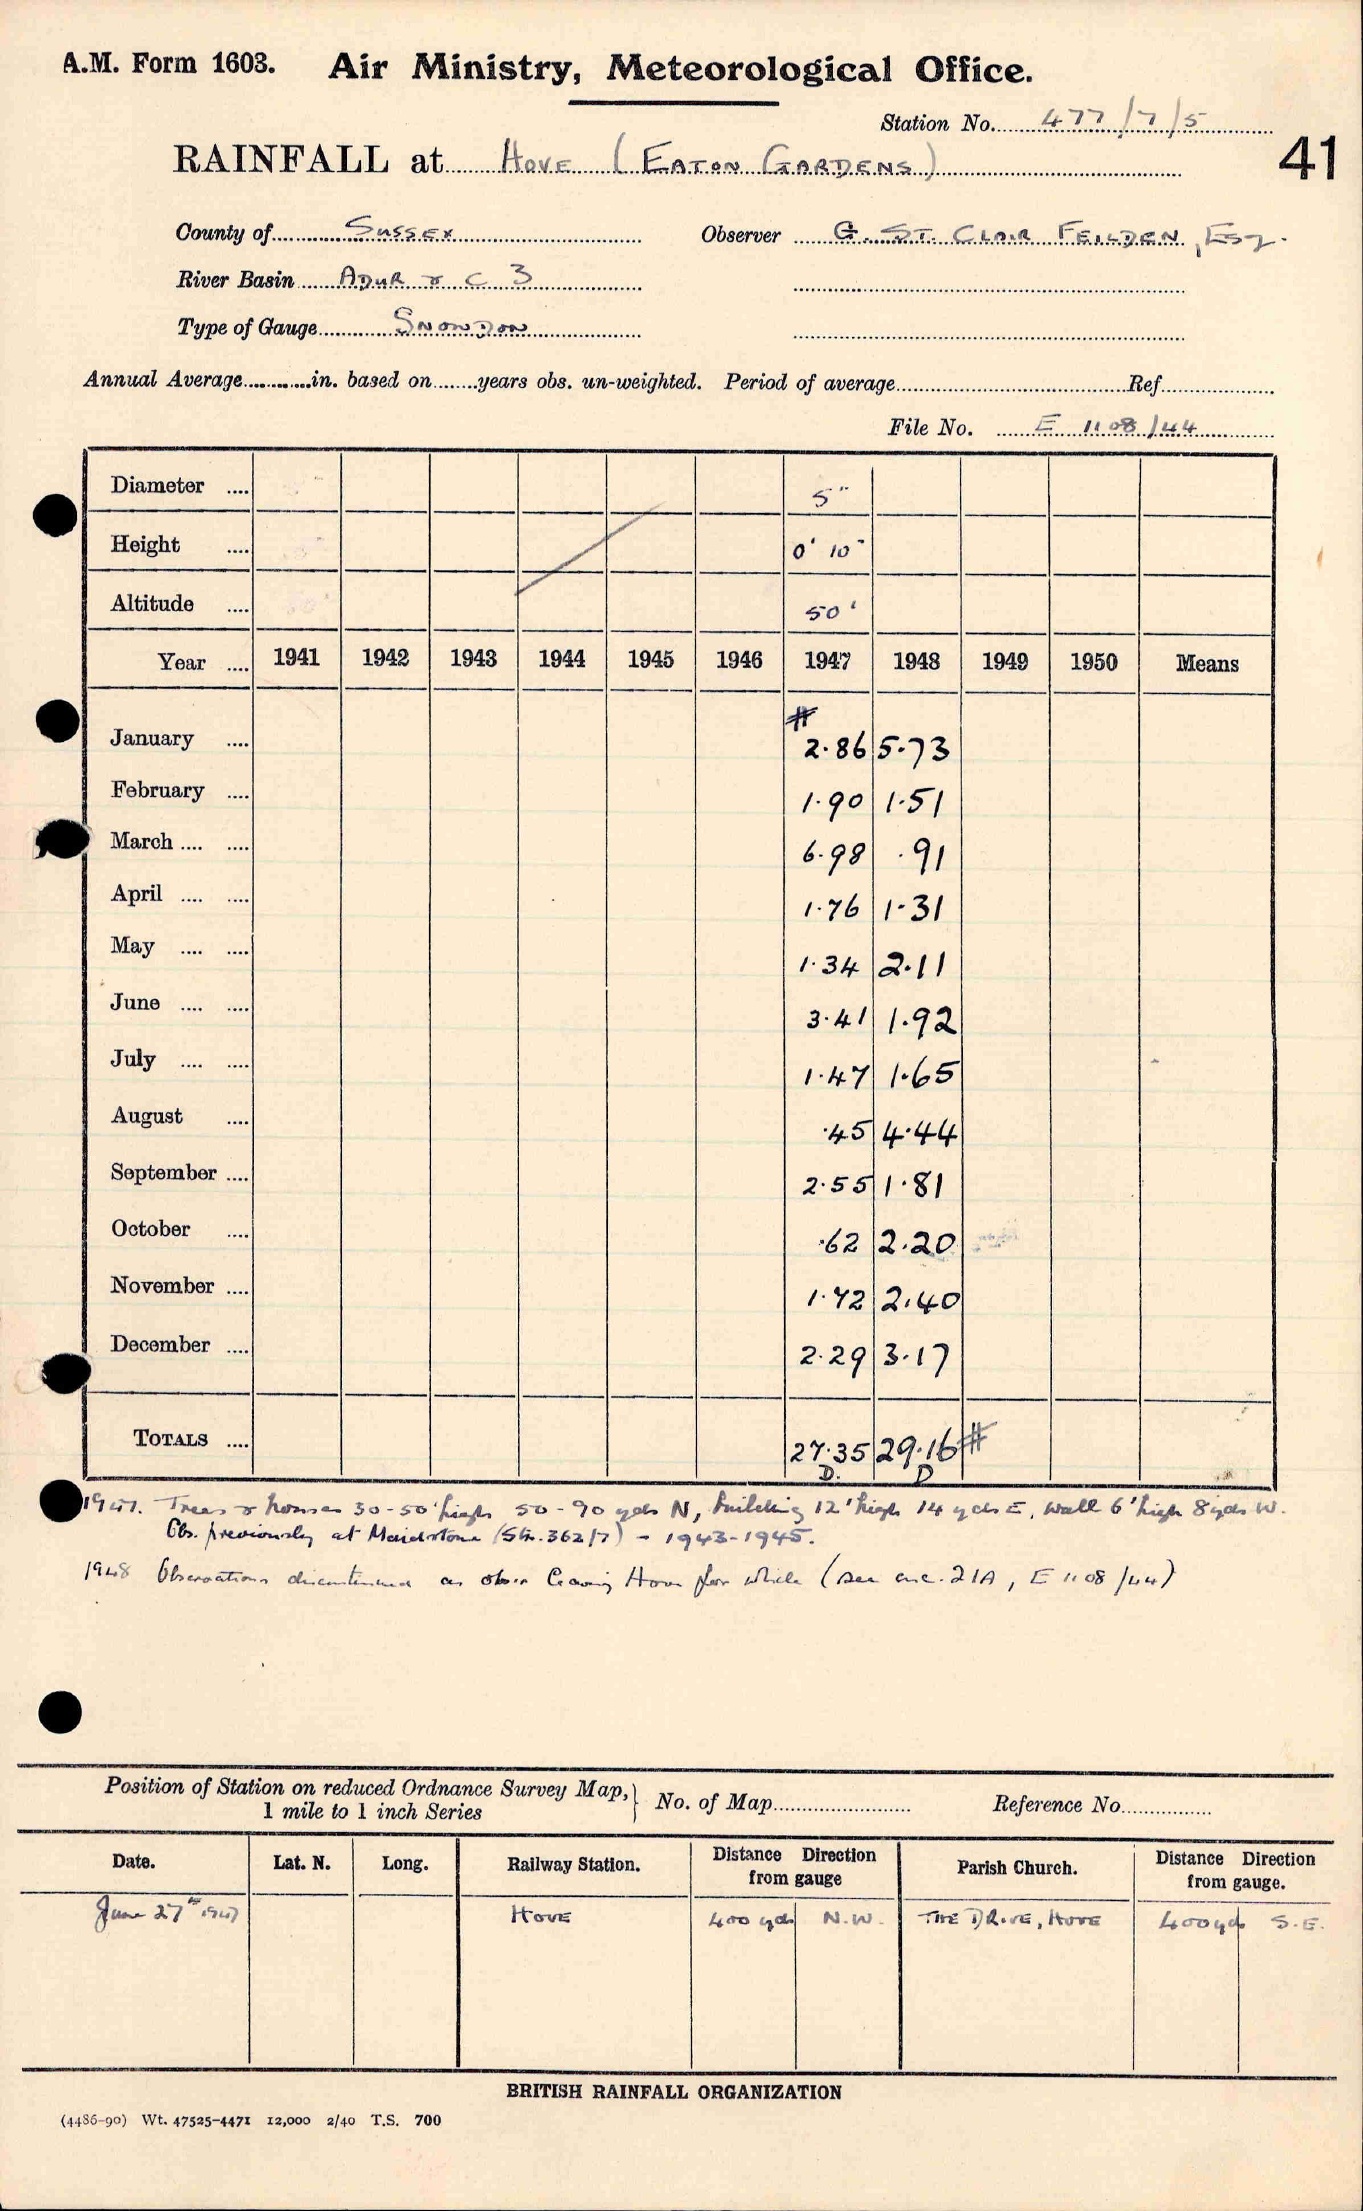 A.M. Form 1603. Air Ministry, Meteorological Office.
Station No. 477/7/5
RAINFALL at HOVE (EATON GARDENS) 41
County of SUSSEX Observer G. ST. CLAIR FEILDEN, Esq.
River Basin ADUR & C 3
Type of Gauge SNOWDON
Annual Average in. based on years obs. un-weighted. Period of average Ref
File No. E 1108/44
Diameter .... 5"
Height .... 0' 10"
Altitude .... 50'
Year .... 1941 1942 1943 1944 1945 1946 1947 1948 1949 1950 Means
#
January .... 2.86 5.73
February .... 1.90 1.51
March .... .... 6.98 .91
April .... .... 1.76 1.31
May .... .... 1.34 2.11
June .... .... 3.41 1.92
July .... .... 1.47 1.65
August .... .45 4.44
September .... 2.55 1.81
October .... .62 2.20
November .... 1.72 2.40
December .... 2.29 3.17
TOTALS .... 27.35 29.16 #
D. D
1947. Trees & houses 30-50' high 50-90 yds N, building 12' high 14 yds E, wall 6' high 8 yds W.
Obs. previously at Maidstone (Stn. 362/7) - 1943-1945.
1948 Observations discontinued as obsr leaving Hove for while (see enc. 21A, E 1108/44)
Position of Station on reduced Ordnance Survey Map, 1 mile to 1 inch Series } No. of Map Reference No.
Date. Lat. N. Long. Railway Station. Distance Direction from gauge Parish Church. Distance Direction from gauge.
June 27th 1947 HOVE 400 yds N.W. THE DRIVE, HOVE 400 yds S.E.
BRITISH RAINFALL ORGANIZATION
(4486-90) Wt. 47525-4471 12,000 2/40 T.S. 700